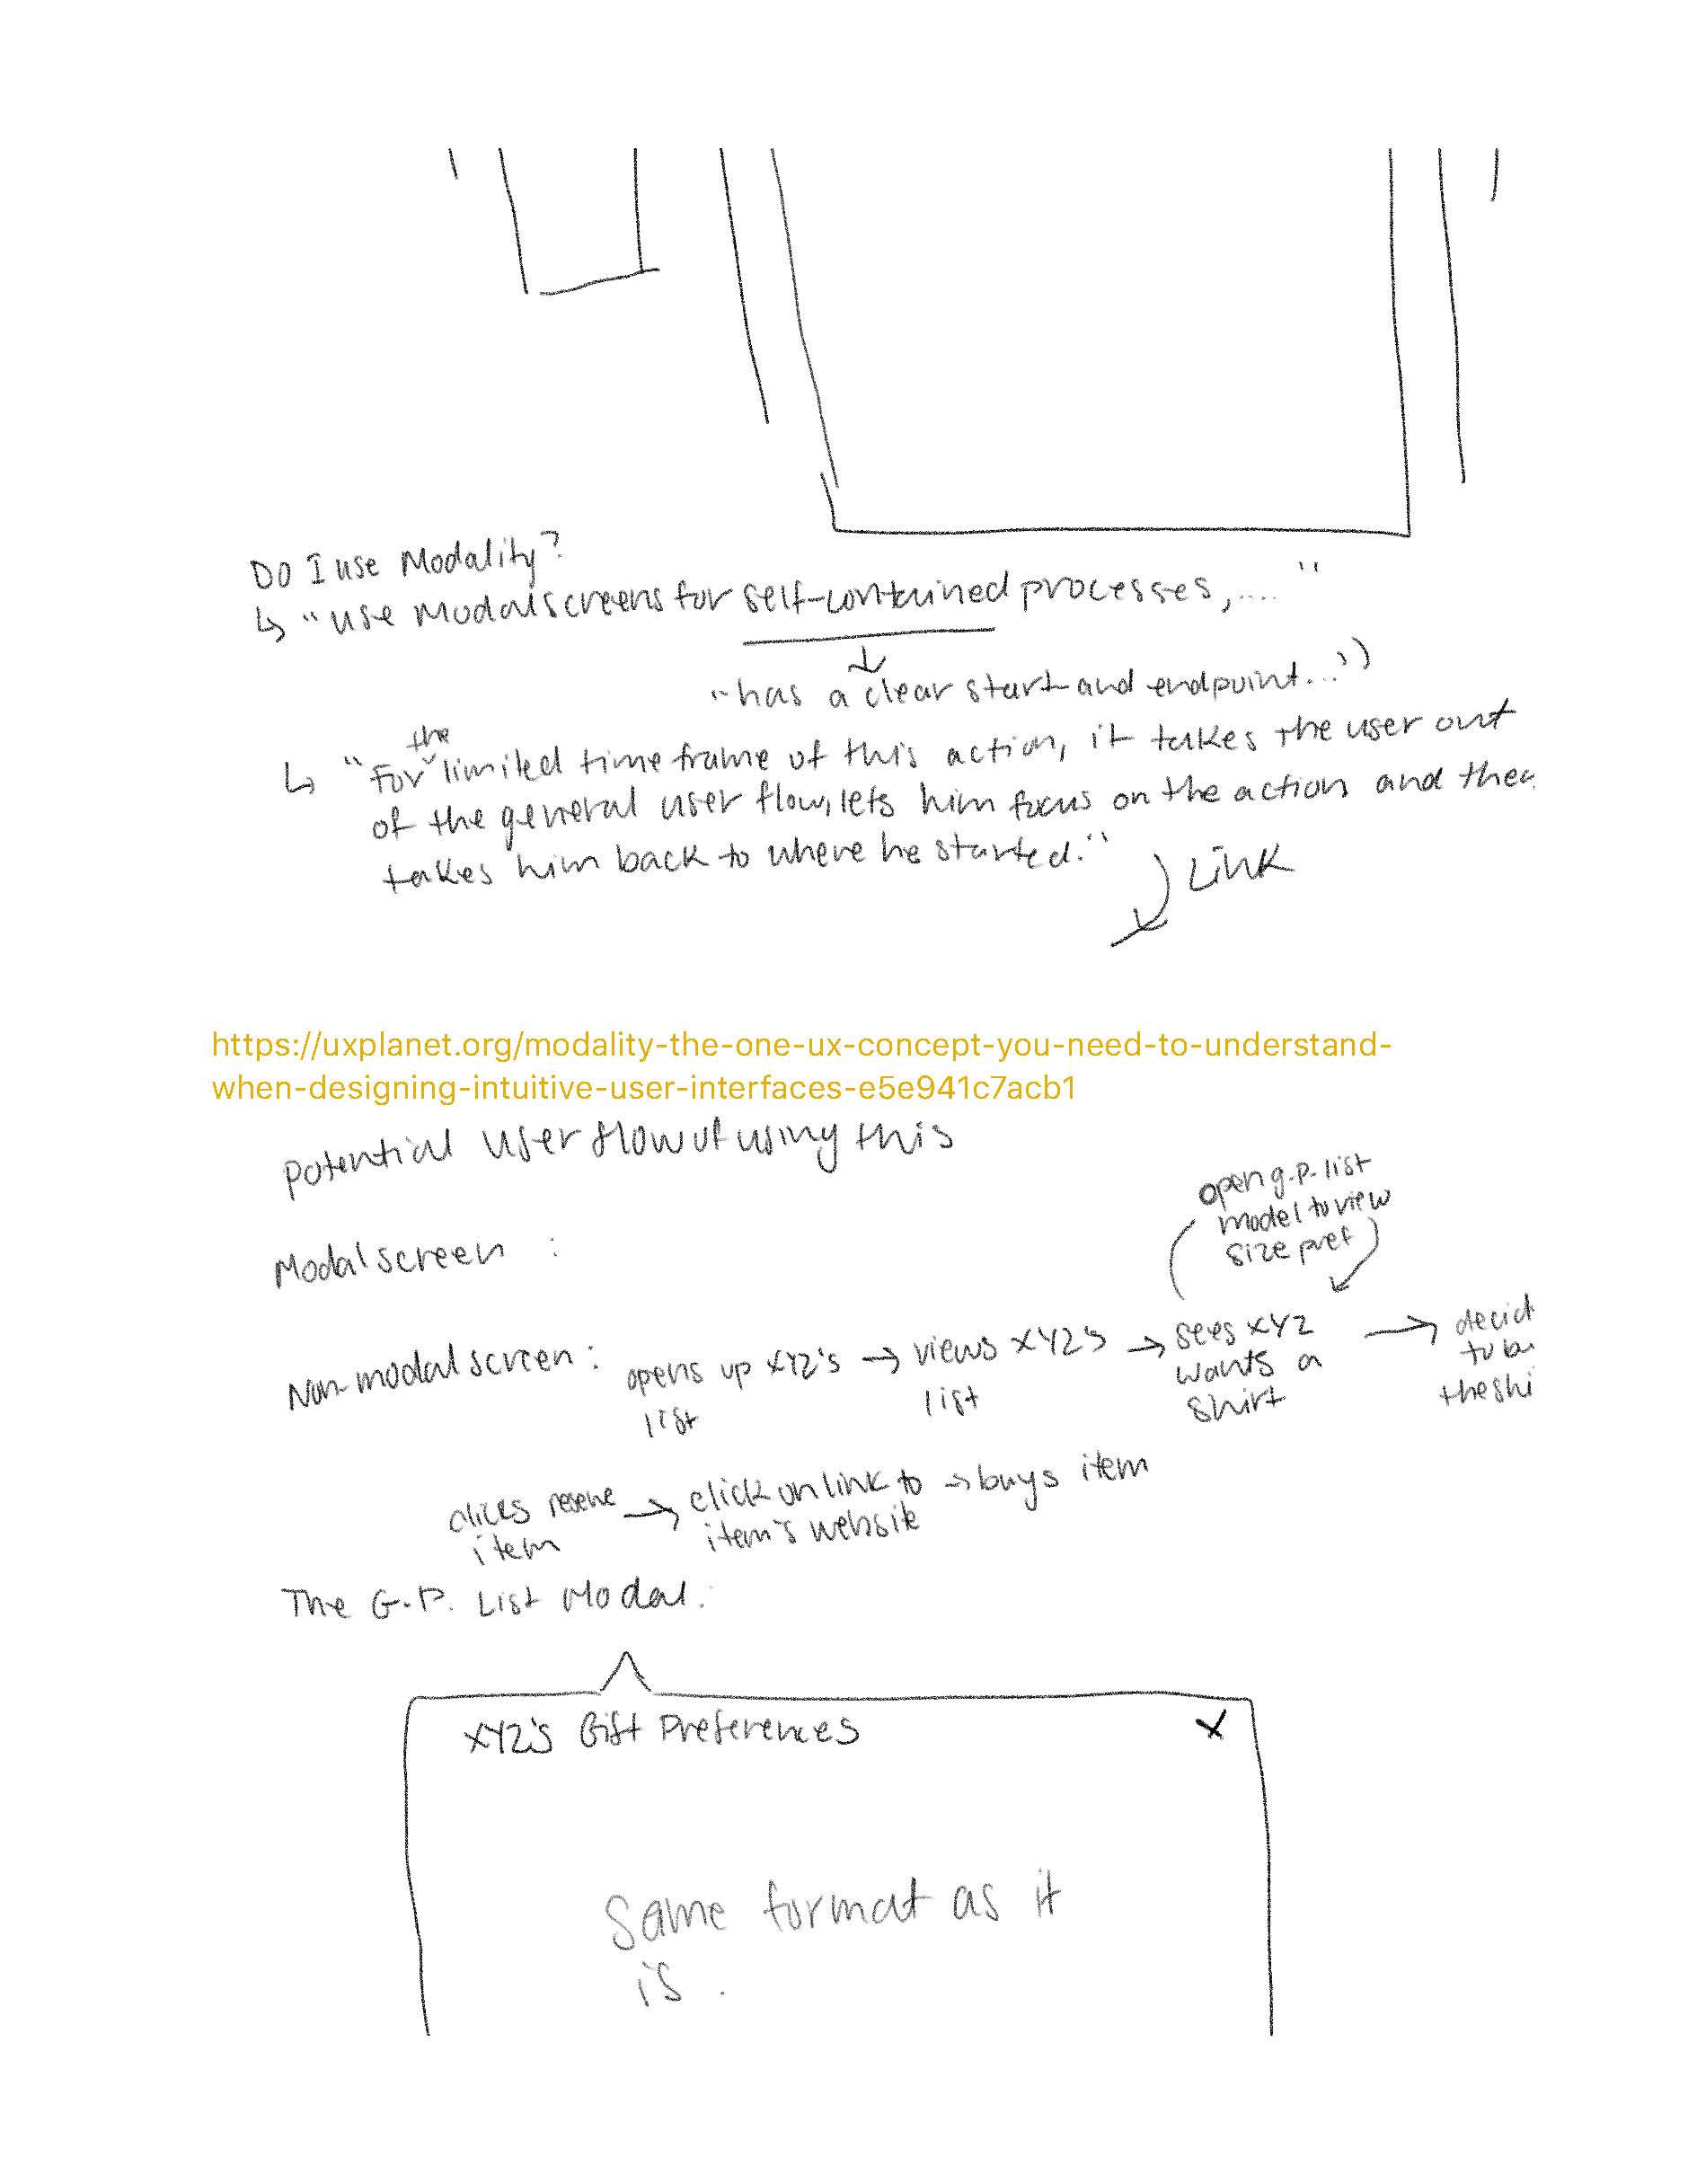 Do I use Modality?
↳ "use Modal screens for self-contained processes,...."
↓
"has a clear start and endpoint...")
the
↳ "For limited time frame of this action, it takes the user out
of the general user flow, lets him focus on the action and then
takes him back to where he started."
Link
https://uxplanet.org/modality-the-one-ux-concept-you-need-to-understand-
when-designing-intuitive-user-interfaces-e5e941c7acb1
potential user flow of using this
open g.p. list
model to view
size pref
Modal screen :
Non-modal screen : opens up XYZ's → views XYZ's → sees XYZ → decid
list list wants a to bu
shirt the shi
clicks reserve → click on link to → buys item
item item's website
The G.P. List Modal.
XYZ's Gift Preferences X
Same format as it
is.